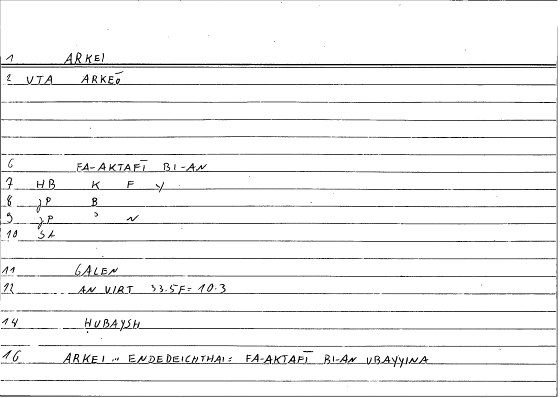 1 ARKEI
2 VTA ARKEŌ
6 FA-AKTAFĪ BI-AN
7 HB K F Y
8 JP B
9 JP ʾ N
10 SL
11 GALEN
12 AN VIRT 33.5F= 10.3
14 ḤUBAYSH
16 ARKEI .. ENDEDEICHTHAI= FA-AKTAFĪ BI-AN UBAYYINA